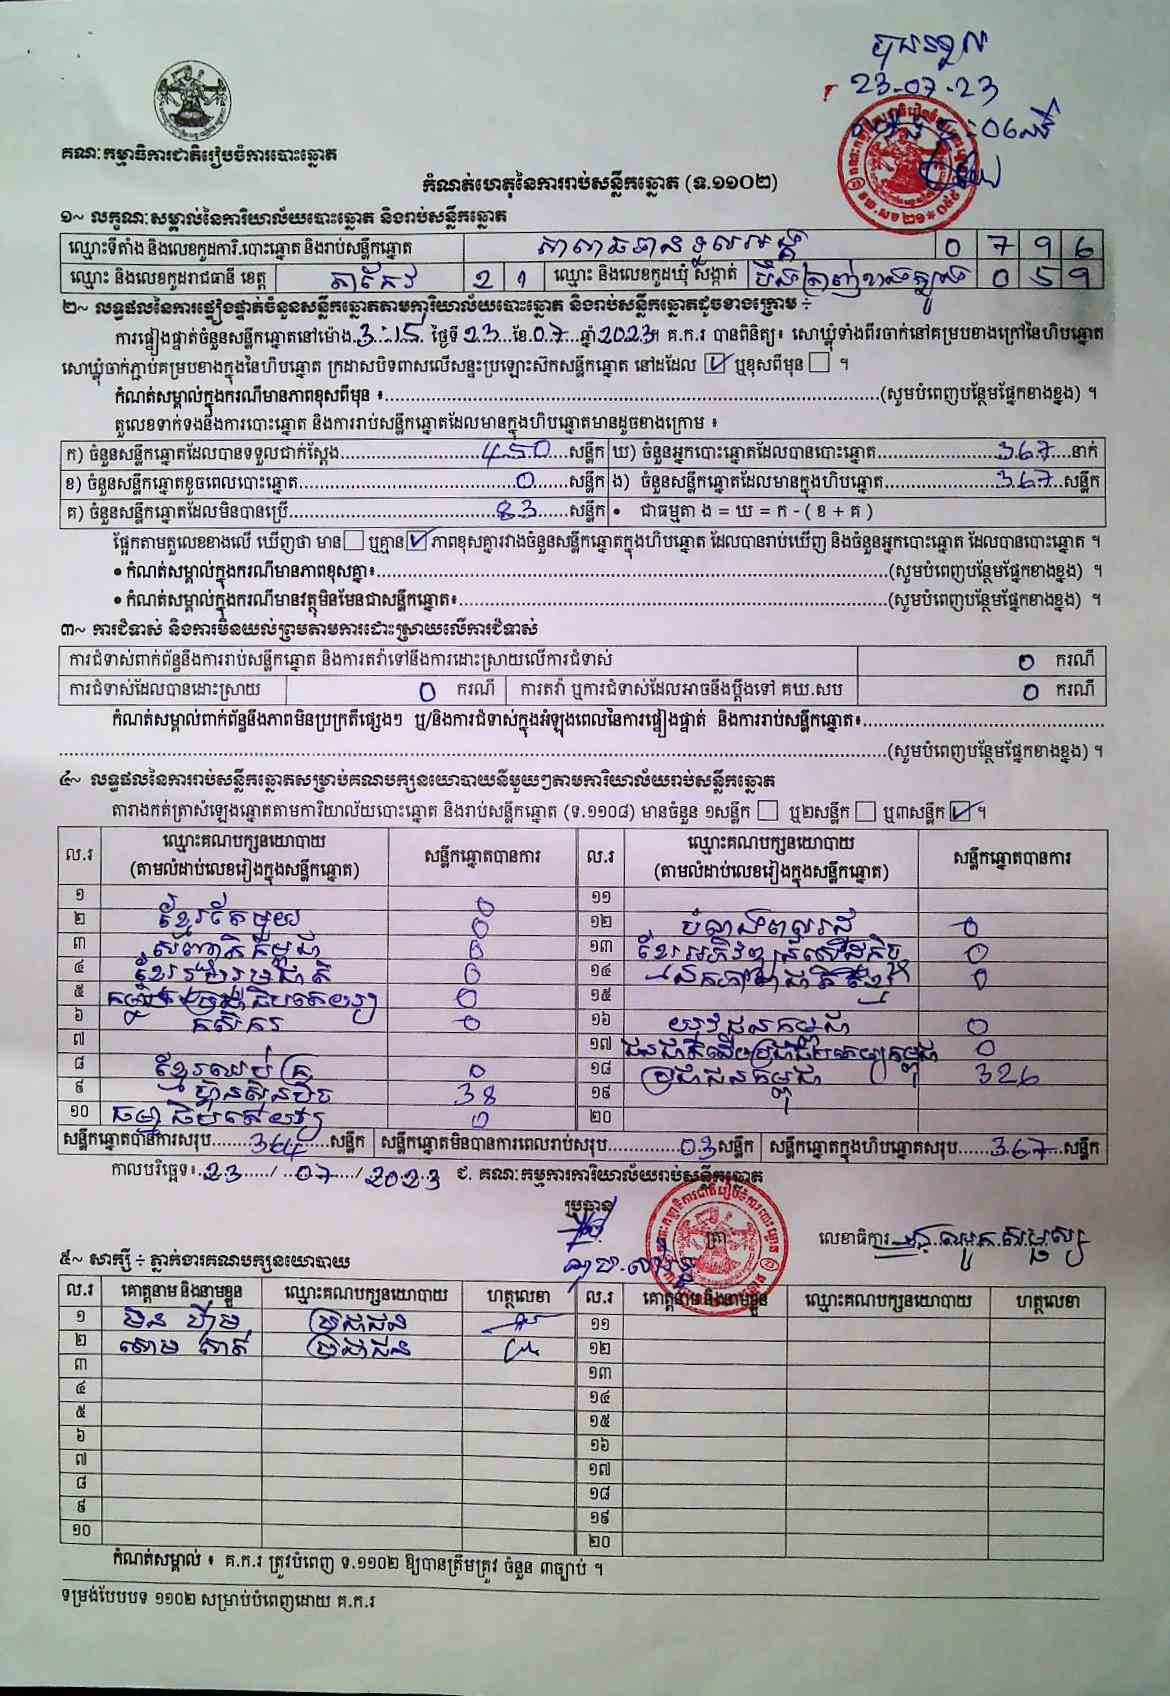 23-07-23
គណៈកម្មាធិការជាតិរៀបចំការបោះឆ្នោត
កំណត់ហេតុនៃការរាប់សន្លឹកឆ្នោត (ទ.១១០២)
១~ លក្ខណៈសម្គាល់នៃការិយាល័យបោះឆ្នោត និងរាប់សន្លឹកឆ្នោត
ឈ្មោះទីតាំង និងលេខកូដការិ.បោះឆ្នោត និងរាប់សន្លឹកឆ្នោត 0 7 9 6
ឈ្មោះ និងលេខកូដរាជធានី ខេត្ត តាកែវ 2 1 ឈ្មោះ និងលេខកូដឃុំ សង្កាត់ បឹងត្រាញ់ខាងត្បូង 0 5 9
២~ លទ្ធផលនៃការផ្ទៀងផ្ទាត់ចំនួនសន្លឹកឆ្នោតតាមការិយាល័យបោះឆ្នោត និងរាប់សន្លឹកឆ្នោតដូចខាងក្រោម ÷
ការផ្ទៀងផ្ទាត់ចំនួនសន្លឹកឆ្នោតនៅម៉ោង.3:15. ថ្ងៃទី 23...ខែ.07...ឆ្នាំ2023។ គ.ក.រ បានពិនិត្យ៖ សោឃ្លុំទាំងពីរចាក់នៅគម្របខាងក្រៅនៃហិបឆ្នោត
សោឃ្លុំចាក់ភ្ជាប់គម្របខាងក្នុងនៃហិបឆ្នោត ក្រដាសបិទពាសលើសន្ទះប្រឡោះស៊កសន្លឹកឆ្នោត នៅដដែល ☑ ឬខុសពីមុន ☐ ។
កំណត់សម្គាល់ក្នុងករណីមានភាពខុសពីមុន ៖..........(សូមបំពេញបន្ថែមផ្នែកខាងខ្នង) ។
តួលេខទាក់ទងនឹងការបោះឆ្នោត និងការរាប់សន្លឹកឆ្នោតដែលមានក្នុងហិបឆ្នោតមានដូចខាងក្រោម ៖
ក) ចំនួនសន្លឹកឆ្នោតដែលបានទទួលជាក់ស្តែង..........450...សន្លឹក ឃ) ចំនួនអ្នកបោះឆ្នោតដែលបានបោះឆ្នោត..........367...នាក់
ខ) ចំនួនសន្លឹកឆ្នោតខូចពេលបោះឆ្នោត..........0...សន្លឹក ង) ចំនួនសន្លឹកឆ្នោតដែលមានក្នុងហិបឆ្នោត..........367...សន្លឹក
គ) ចំនួនសន្លឹកឆ្នោតដែលមិនបានប្រើ..........83...សន្លឹក • ជាធម្មតា ង = ឃ = ក - ( ខ + គ )
ផ្អែកតាមតួលេខខាងលើ ឃើញថា មាន☐ ឬគ្មាន☑ ភាពខុសគ្នារវាងចំនួនសន្លឹកឆ្នោតក្នុងហិបឆ្នោត ដែលបានរាប់ឃើញ និងចំនួនអ្នកបោះឆ្នោត ដែលបានបោះឆ្នោត ។
• កំណត់សម្គាល់ក្នុងករណីមានភាពខុសគ្នា៖..........(សូមបំពេញបន្ថែមផ្នែកខាងខ្នង) ។
• កំណត់សម្គាល់ក្នុងករណីមានវត្ថុមិនមែនជាសន្លឹកឆ្នោត៖..........(សូមបំពេញបន្ថែមផ្នែកខាងខ្នង) ។
៣~ ការជំទាស់ និងការមិនយល់ព្រមតាមការដោះស្រាយលើការជំទាស់
ការជំទាស់ពាក់ព័ន្ធនឹងការរាប់សន្លឹកឆ្នោត និងការតវ៉ាទៅនឹងការដោះស្រាយលើការជំទាស់ 0 ករណី
ការជំទាស់ដែលបានដោះស្រាយ 0 ករណី ការតវ៉ា ឬការជំទាស់ដែលអាចនឹងប្តឹងទៅ គឃ.សប 0 ករណី
កំណត់សម្គាល់ពាក់ព័ន្ធនឹងភាពមិនប្រក្រតីផ្សេងៗ ឬ/និងការជំទាស់ក្នុងអំឡុងពេលនៃការផ្ទៀងផ្ទាត់ និងការរាប់សន្លឹកឆ្នោត៖..........
..........(សូមបំពេញបន្ថែមផ្នែកខាងខ្នង) ។
៤~ លទ្ធផលនៃការរាប់សន្លឹកឆ្នោតសម្រាប់គណបក្សនយោបាយនីមួយៗតាមការិយាល័យរាប់សន្លឹកឆ្នោត
តារាងកត់ត្រាសំឡេងឆ្នោតតាមការិយាល័យបោះឆ្នោត និងរាប់សន្លឹកឆ្នោត (ទ.១១០៨) មានចំនួន ១សន្លឹក ☐ ឬ២សន្លឹក ☐ ឬ៣សន្លឹក ☑ ។
ល.រ ឈ្មោះគណបក្សនយោបាយ (តាមលំដាប់លេខរៀងក្នុងសន្លឹកឆ្នោត) សន្លឹកឆ្នោតបានការ ល.រ ឈ្មោះគណបក្សនយោបាយ (តាមលំដាប់លេខរៀងក្នុងសន្លឹកឆ្នោត) សន្លឹកឆ្នោតបានការ
១ 0 ១១
២ ខ្មែរតែមួយ 0 ១២ បំណងពលរដ្ឋ 0
៣ សញ្ជាតិកម្ពុជា 0 ១៣ ខ្មែរអភិវឌ្ឍន៍សេដ្ឋកិច្ច 0
៤ 0 ១៤ ឯកភាពជាតិខ្មែរ 0
៥ 0 ១៥
៦ កសិករ 0 ១៦ យុវជនកម្ពុជា 0
៧ ១៧ ជនជាតិដើមប្រជាធិបតេយ្យកម្ពុជា 0
៨ ខ្មែរឈប់ក្រ 0 ១៨ ប្រជាជនកម្ពុជា 326
៩ ហ៊្វុនស៊ិនប៉ិច 38 ១៩
១០ ធម្មាធិបតេយ្យ 0 ២០
សន្លឹកឆ្នោតបានការសរុប.......364....សន្លឹក សន្លឹកឆ្នោតមិនបានការពេលរាប់សរុប..........03 សន្លឹក សន្លឹកឆ្នោតក្នុងហិបឆ្នោតសរុប......367....សន្លឹក
កាលបរិច្ឆេទ៖.23..../..07..../..2023 ជ. គណៈកម្មការការិយាល័យរាប់សន្លឹកឆ្នោត
ប្រធាន
ត្រា
លេខាធិការ
៥~ សាក្សី ÷ ភ្នាក់ងារគណបក្សនយោបាយ
ល.រ គោត្តនាម និងនាមខ្លួន ឈ្មោះគណបក្សនយោបាយ ហត្ថលេខា ល.រ គោត្តនាម និងនាមខ្លួន ឈ្មោះគណបក្សនយោបាយ ហត្ថលេខា
១ ប្រជាជន ១១
២ ប្រជាជន ១២
៣ ១៣
៤ ១៤
៥ ១៥
៦ ១៦
៧ ១៧
៨ ១៨
៩ ១៩
១០ ២០
កំណត់សម្គាល់ ៖ គ.ក.រ ត្រូវបំពេញ ទ.១១០២ ឱ្យបានត្រឹមត្រូវ ចំនួន ៣ច្បាប់ ។
ទម្រង់បែបបទ ១១០២ សម្រាប់បំពេញដោយ គ.ក.រ